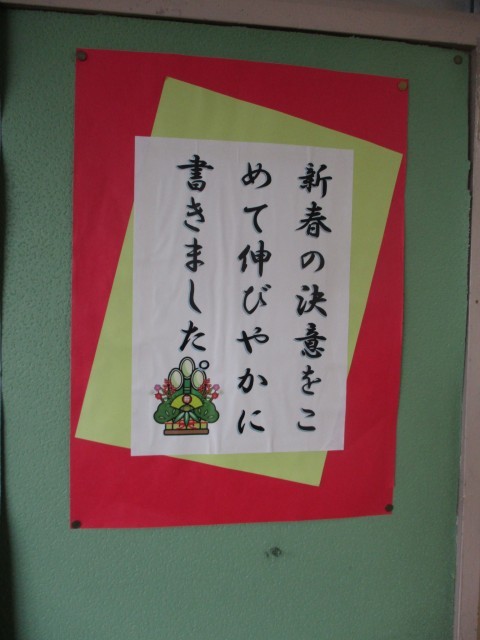 新春の決意をこ
めて伸びやかに
書きました。